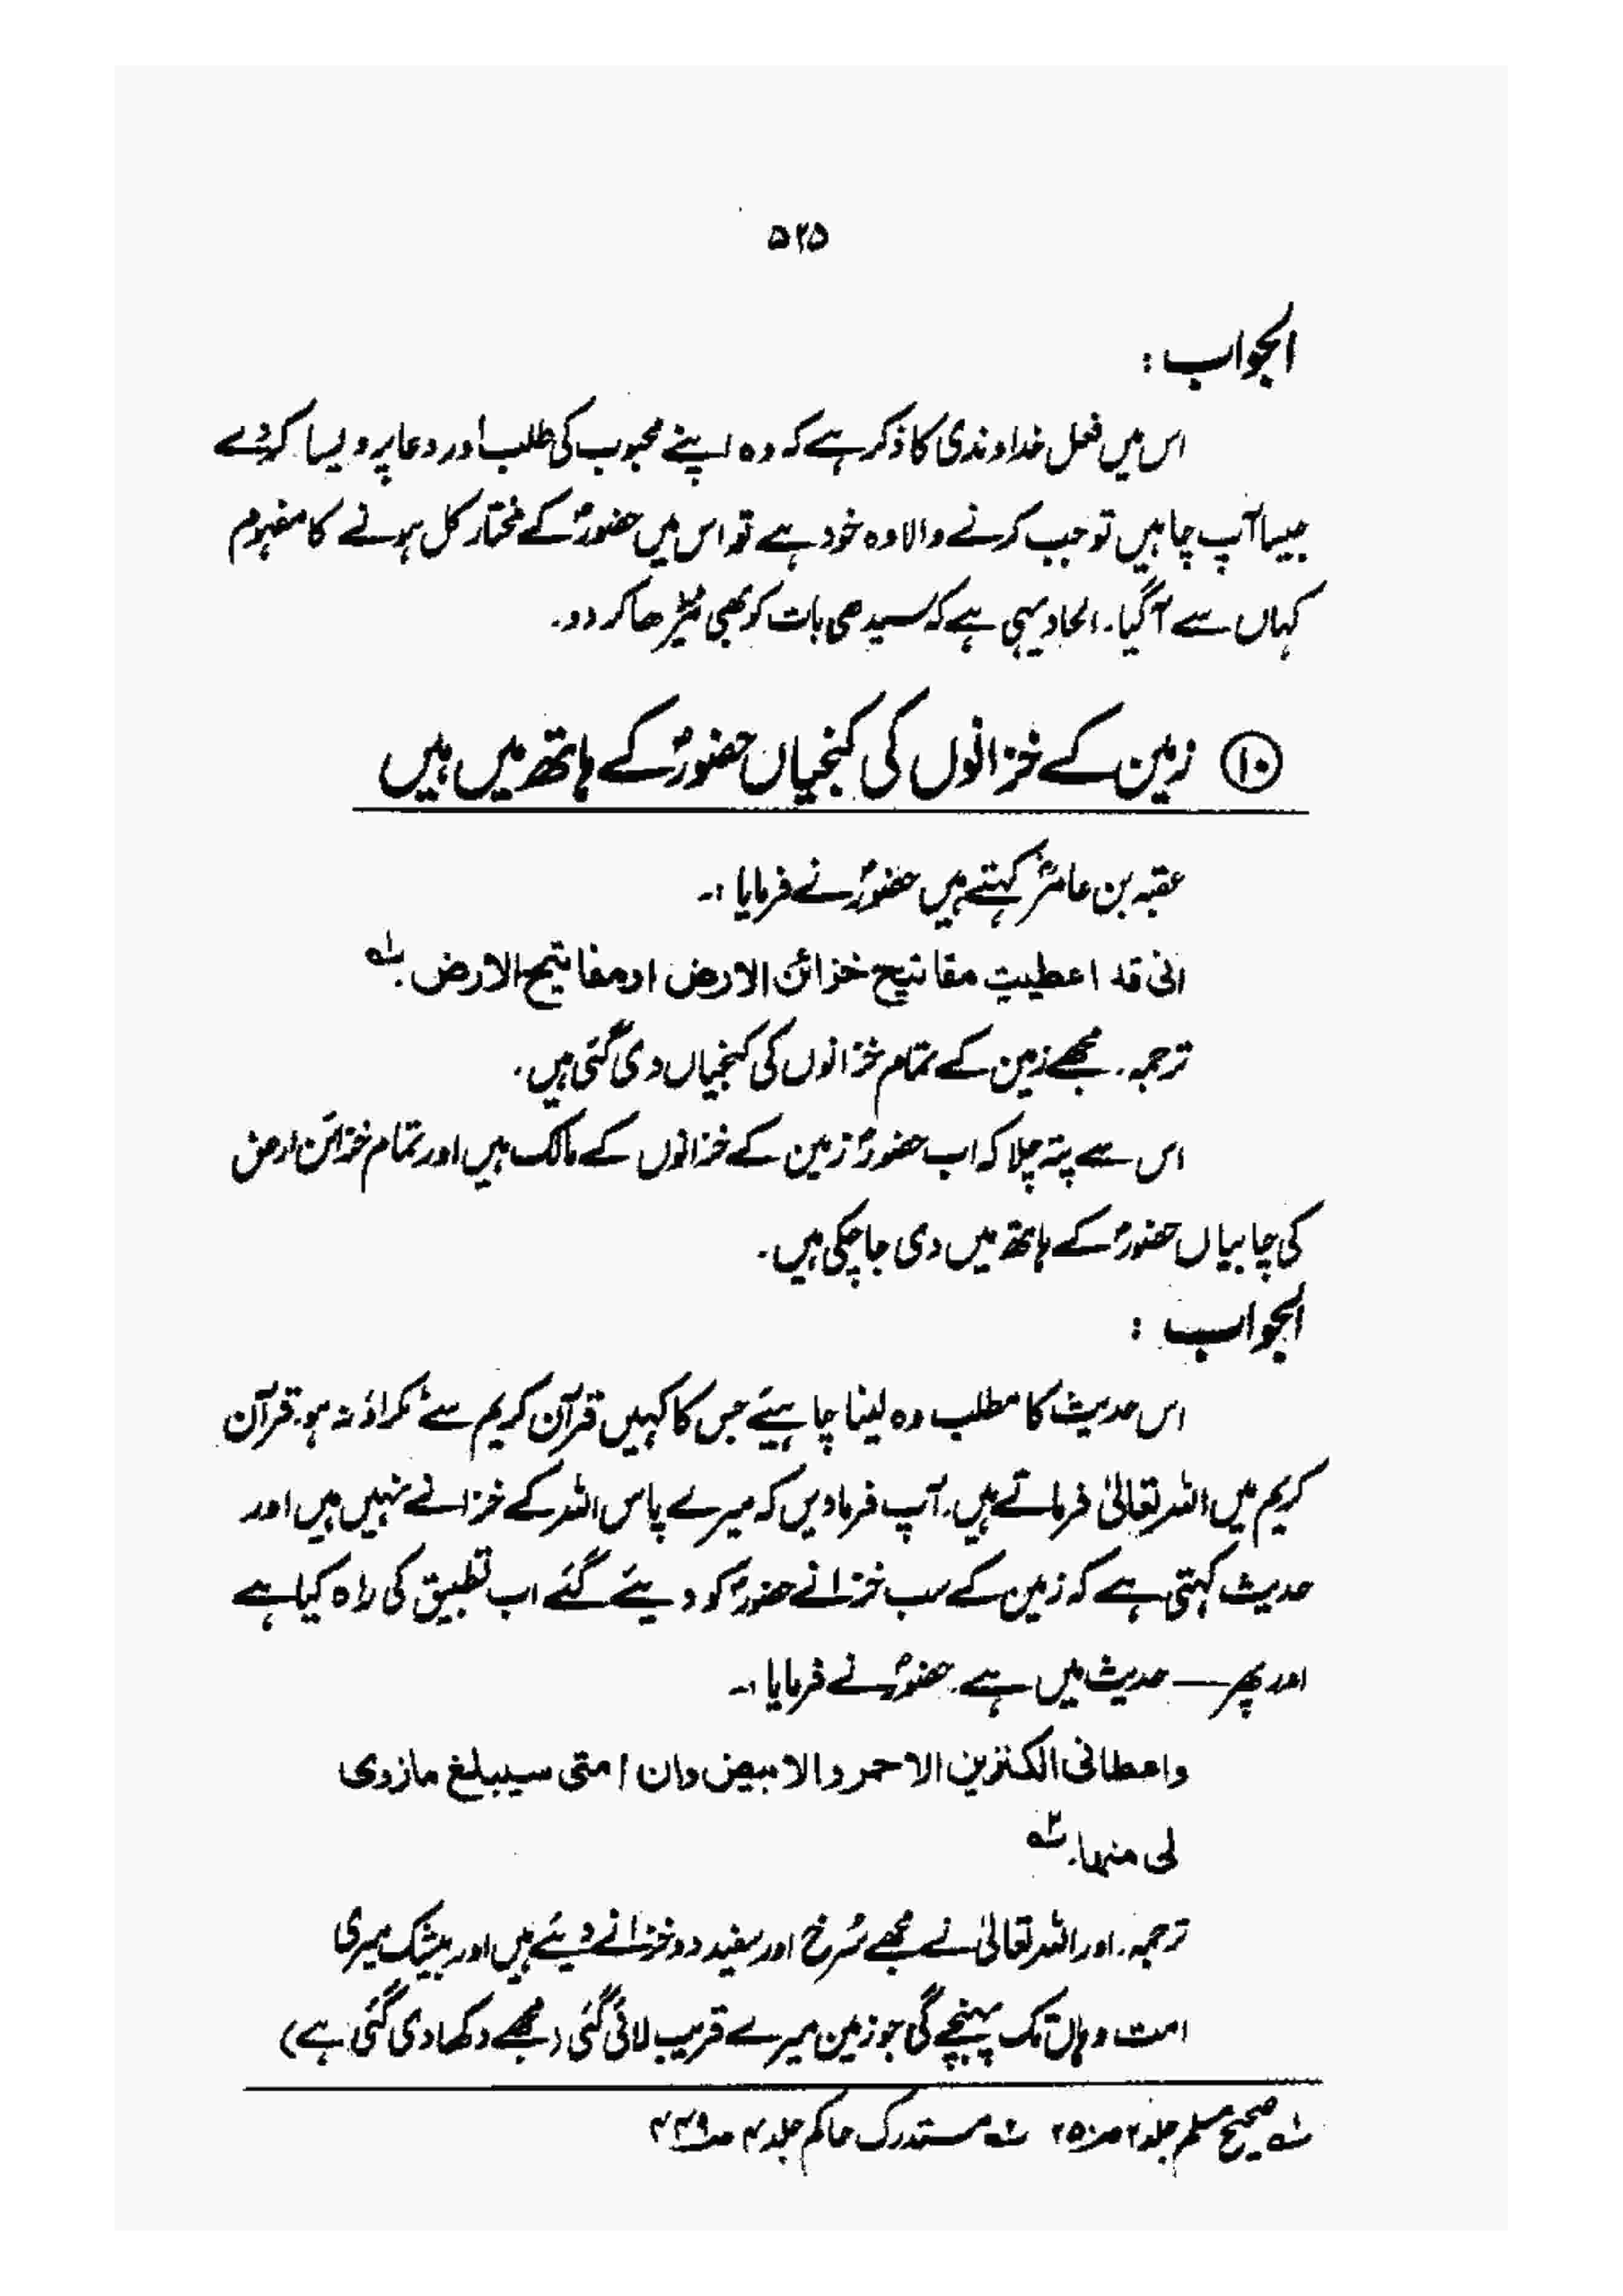 ۵۲۵
الجواب :
اس میں فعل خداوندی کا ذکر ہے کہ وہ اپنے محبوب کی طلب اور دعا پر ویسا کر دے
جیسا آپ چاہیں تو جب کرنے والا وہ خود ہے تو اس میں حضورؐ کے مختار کل ہونے کا مفہوم
کہاں سے آ گیا۔ الحاد یہی ہے کہ سیدھی بات کو بھی ٹیڑھا کر دو۔
⑩ زمین کے خزانوں کی کنجیاں حضورؐ کے ہاتھ میں ہیں
عقبہ بن عامرؓ کہتے ہیں حضورؐ نے فرمایا :۔
انی قد اعطیت مفاتیح خزائن الارض او مفاتیح الارض۔ ؎۱
ترجمہ۔ مجھے زمین کے تمام خزانوں کی کنجیاں دی گئی ہیں۔
اس سے پتہ چلا کہ اب حضورؐ زمین کے خزانوں کے مالک ہیں اور تمام خزائن ارض
کی چابیاں حضورؐ کے ہاتھ میں دی جا چکی ہیں۔
الجواب :
اس حدیث کا مطلب وہ لینا چاہیئے جس کا کہیں قرآن کریم سے ٹکراؤ نہ ہو۔ قرآن
کریم میں اللہ تعالیٰ فرماتے ہیں۔ آپ فرمادیں کہ میرے پاس اللہ کے خزانے نہیں ہیں اور
حدیث کہتی ہے کہ زمین کے سب خزانے حضورؐ کو دیئے گئے اب تطبیق کی راہ کیا ہے
اور پھر — حدیث میں ہے حضورؐ نے فرمایا :۔
واعطانی الکنزین الاحمر والابیض وان امتی سیبلغ مازوی
لی منہا۔ ؎۲
ترجمہ۔ اور اللہ تعالیٰ نے مجھے سُرخ اور سفید دو خزانے دیئے ہیں اور بیشک میری
امت وہاں تک پہنچے گی جو زمین میرے قریب لائی گئی (مجھے دکھا دی گئی ہے)
؎۱ صحیح مسلم جلد ۲ ص۲۵۰ ؎۲ مستدرک حاکم جلد ۴ ص۴۴۹